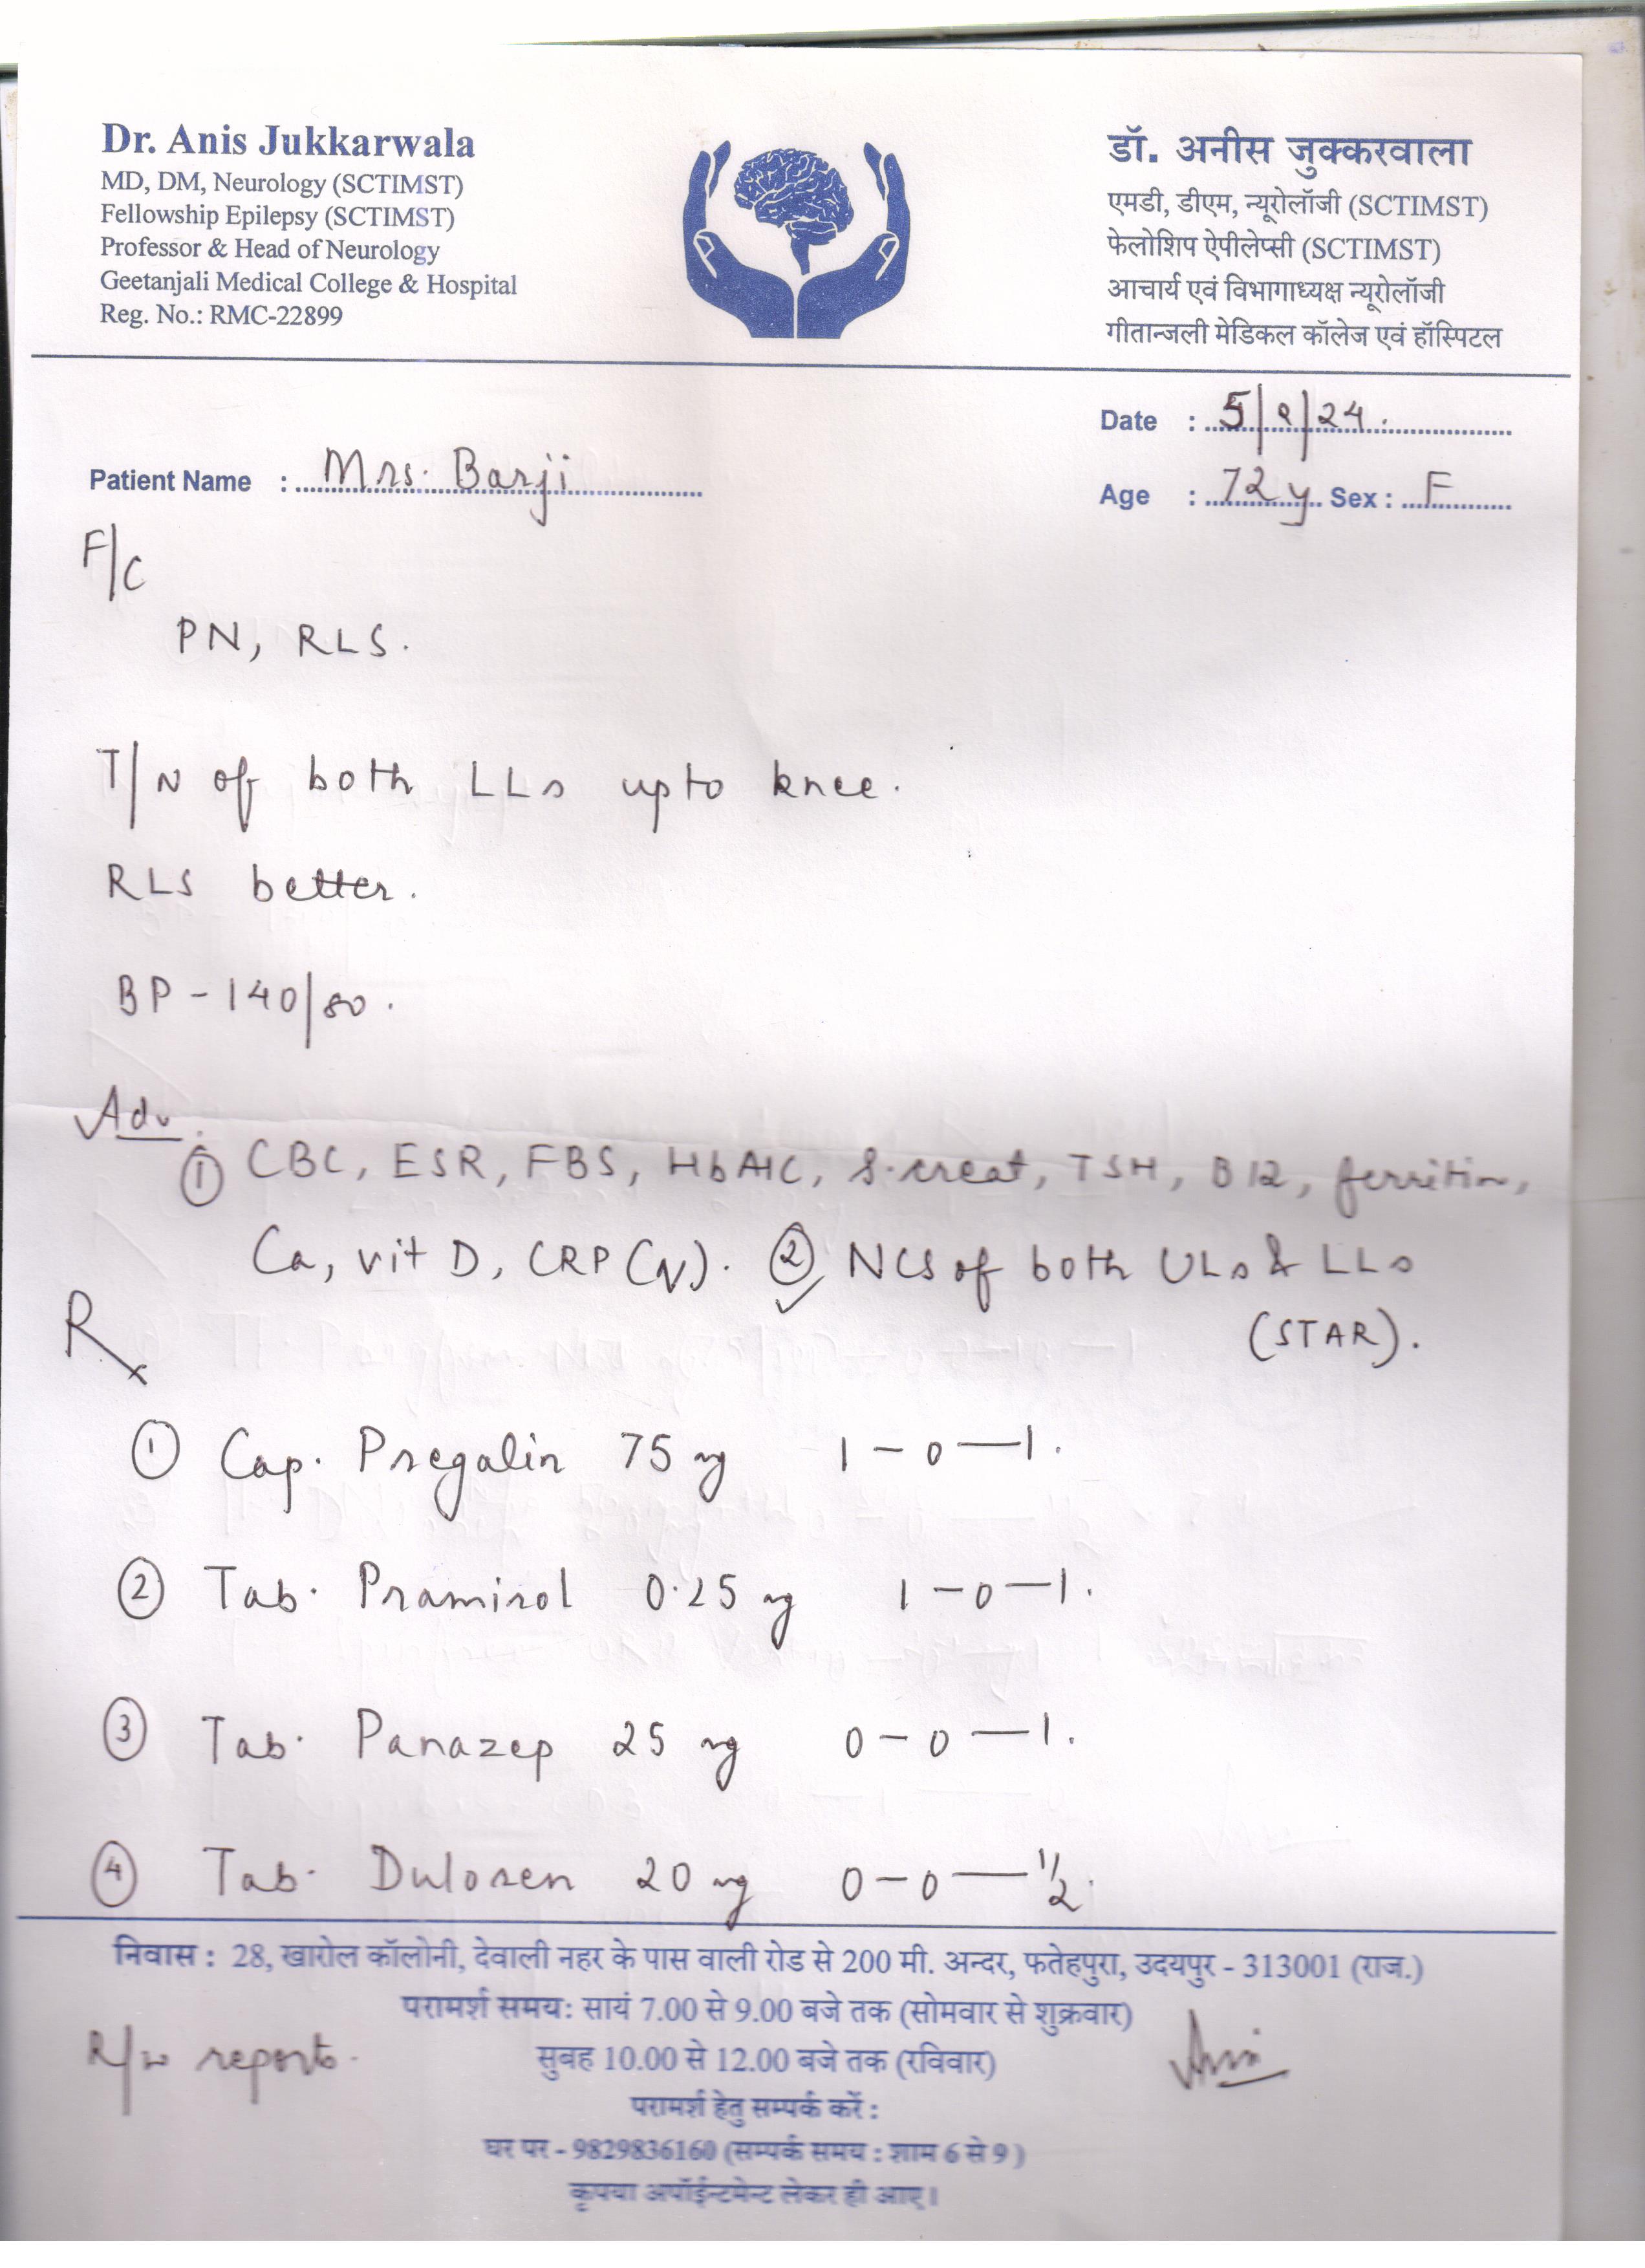 Dr. Anis Jukkarwala
MD, DM, Neurology (SCTIMST)
Fellowship Epilepsy (SCTIMST)
Professor & Head of Neurology
Geetanjali Medical College & Hospital
Reg. No.: RMC-22899
डॉ. अनीस जुक्करवाला
एमडी, डीएम, न्यूरोलॉजी (SCTIMST)
फेलोशिप ऐपीलेप्सी (SCTIMST)
आचार्य एवं विभागाध्यक्ष न्यूरोलॉजी
गीतान्जली मेडिकल कॉलेज एवं हॉस्पिटल
Date : 5/8/24.
Patient Name : Mrs. Barji
Age : 72y Sex : F
F/C
PN, RLS.
T/N of both LLs upto knee.
RLS better.
BP - 140/80.
Adv.
① CBC, ESR, FBS, HbA1C, S.creat, TSH, B12, ferritin,
Ca, vit D, CRP (N). ② NCS of both ULs & LLs
(STAR).
Rx
① Cap. Pregalin 75 mg 1-0-1.
② Tab. Pramirol 0.25 mg 1-0-1.
③ Tab. Panazep 25 mg 0-0-1.
④ Tab. Duloren 20 mg 0-0-1/2.
निवास : 28, खारोल कॉलोनी, देवाली नहर के पास वाली रोड से 200 मी. अन्दर, फतेहपुरा, उदयपुर - 313001 (राज.)
परामर्श समय: सायं 7.00 से 9.00 बजे तक (सोमवार से शुक्रवार)
R/w reports.
सुबह 10.00 से 12.00 बजे तक (रविवार)
परामर्श हेतु सम्पर्क करें :
घर पर - 9829836160 (सम्पर्क समय : शाम 6 से 9 )
कृपया अपॉईन्टमेन्ट लेकर ही आए।